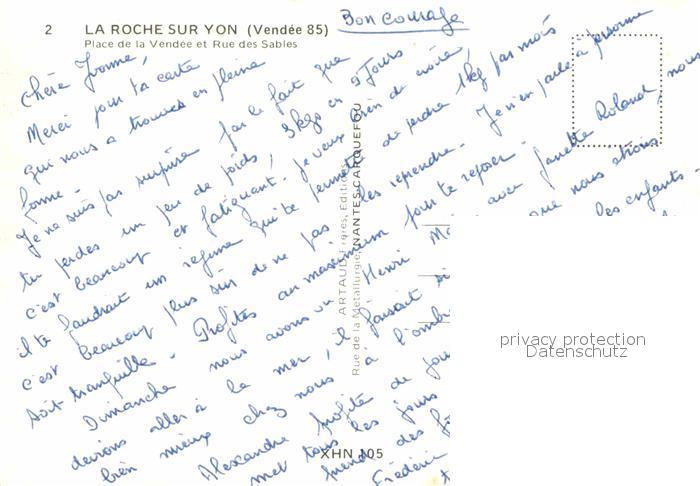 2 LA ROCHE SUR YON (Vendée 85)
Place de la Vendée et Rue des Sables
Bon courage
Chère Yvonne,
Merci pour ta carte
qui nous a trouvés en pleine
forme -
Je ne suis pas surprise par le fait que
tu perdes un peu de poids, 3kg0 en 9 Jours
c'est beaucoup et fatiguant. Je veux bien de croire,
il te faudrait un régime qui te permette de perdre 1kg par mois
c'est beaucoup plus sûr de ne pas les reprendre. Je n'en parle à personne
soit tranquille - Profites au maximum pour te reposer -
Dimanche nous avons vu Henri avec Janette Roland, nous
devions aller à la mer, il faisait que nous étions
bien mieux chez nous à l'ombre les enfants -
Alexandre profite de
met tous les jours
Frédéric
ARTAUD Frères, Editeurs
Rue de la Métallurgie, NANTES-CARQUEFOU
XHN 105
privacy protection
Datenschutz